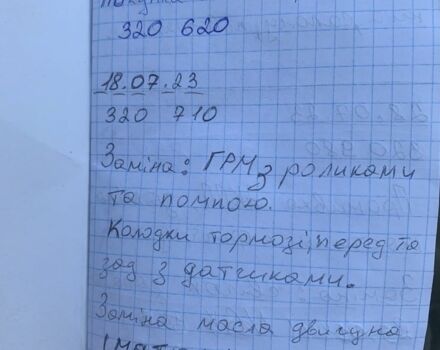 320 620
18.07.23
320 710
Заміна: ГРМ з роликами
та помпою.
Колодки тормозі, перед та
зад з датчиками.
Заміна масла двигуна